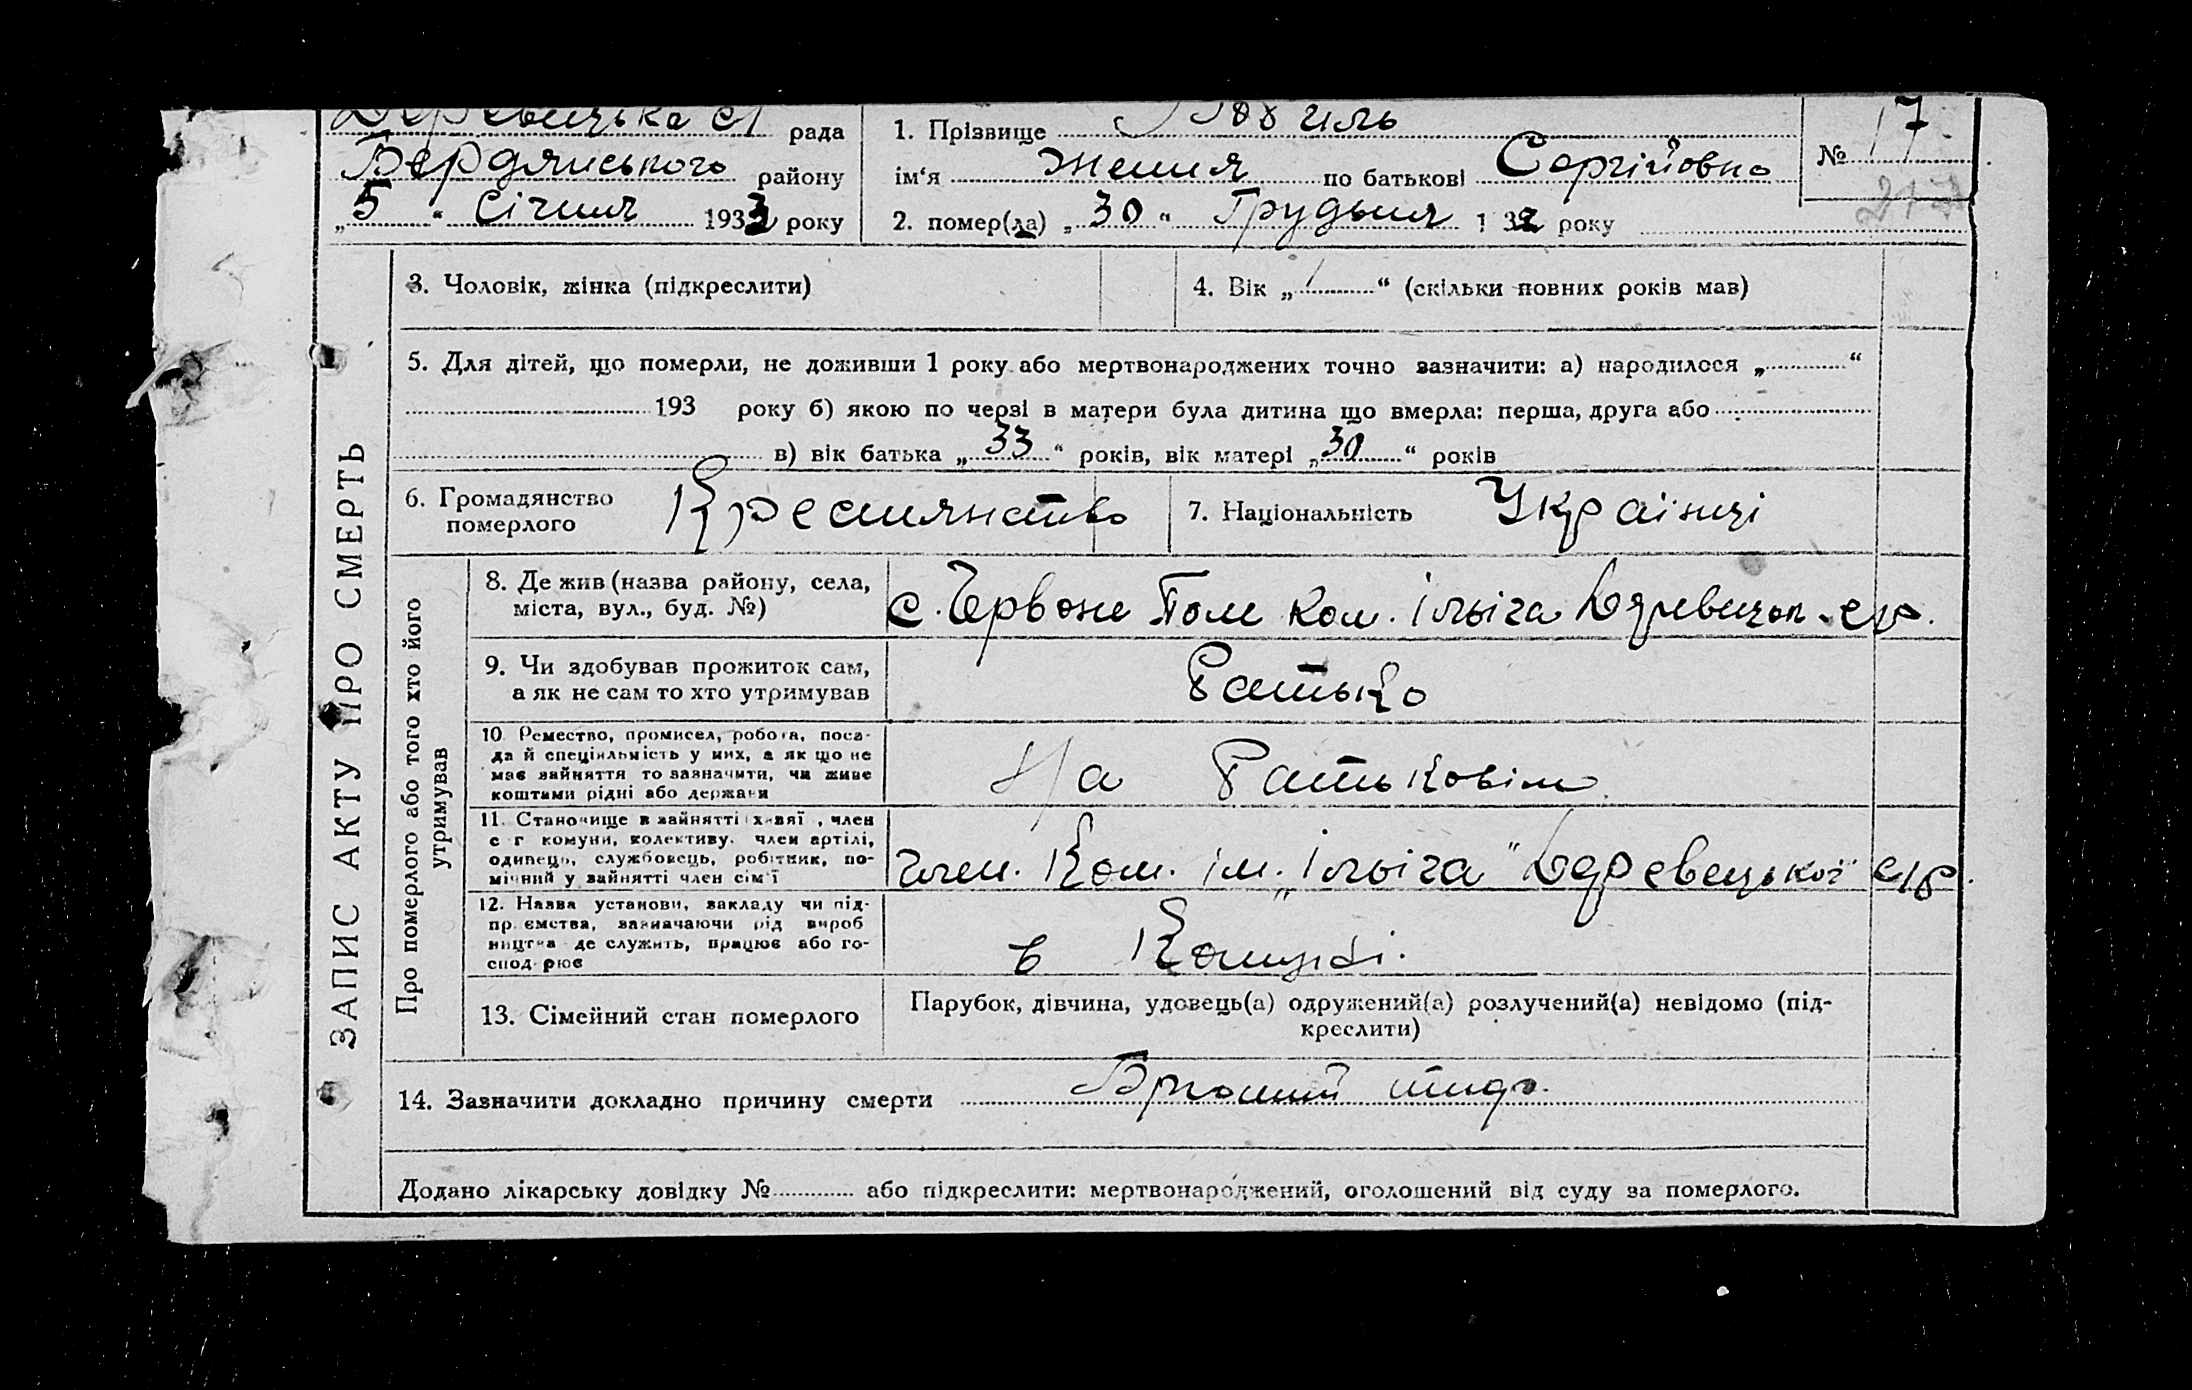 Деревецька с/ рада
Бердянського району
„5“ Січня 1933 року
1. Прізвище
ім‘я Женя по батькові Сергійовна
2. помер(ла) „30“ Грудня 1 32 року
№ 17
217
ЗАПИС АКТУ ПРО СМЕРТЬ
3. Чоловік, жінка (підкреслити)
4. Вік „1“ (скільки повних років мав)
5. Для дітей, що померли, не доживши 1 року або мертвонароджених точно зазначити: а) народилося „ “
193 року б) якою по черзі в матери була дитина що вмерла: перша, друга або
в) вік батька „33“ років, вік матері „30“ років
6. Громадянство
померлого
Крестянство
7. Національність Українці
Про померлого або того хто його
утримував
8. Де жив (назва району, села,
міста, вул., буд. №)
с. Червоне Поле Ком. Ілыіча с/р.
9. Чи здобував прожиток сам,
а як не сам то хто утримував
Батько
10 Ремество, промисел, робота, поса-
да й спеціяльність у них, а як що не
має зайняття то зазначити, чи живе
коштами рідні або держави
На Батьковім
11. Становище в зайнятті хазяї , член
с г комуни, колективу. член артілі,
одинець, службовець, робітник, по-
мічний у зайнятті член сім‘ї
член. Ком. ім. „Ілыіча" Деревецької с/р.
12. Назва установи, закладу чи під-
пр ємства, зазначаючи рід вироб
ництва де служить, працює або го-
спод рює
в Комуні.
13. Сімейний стан померлого
Парубок, дівчина, удовець(а) одружений(а) розлучений(а) невідомо (під-
креслити)
14. Зазначити докладно причину смерти Брюшний тиф.
Додано лікарську довідку № або підкреслити: мертвонароджений, оголошений від суду за померлого.